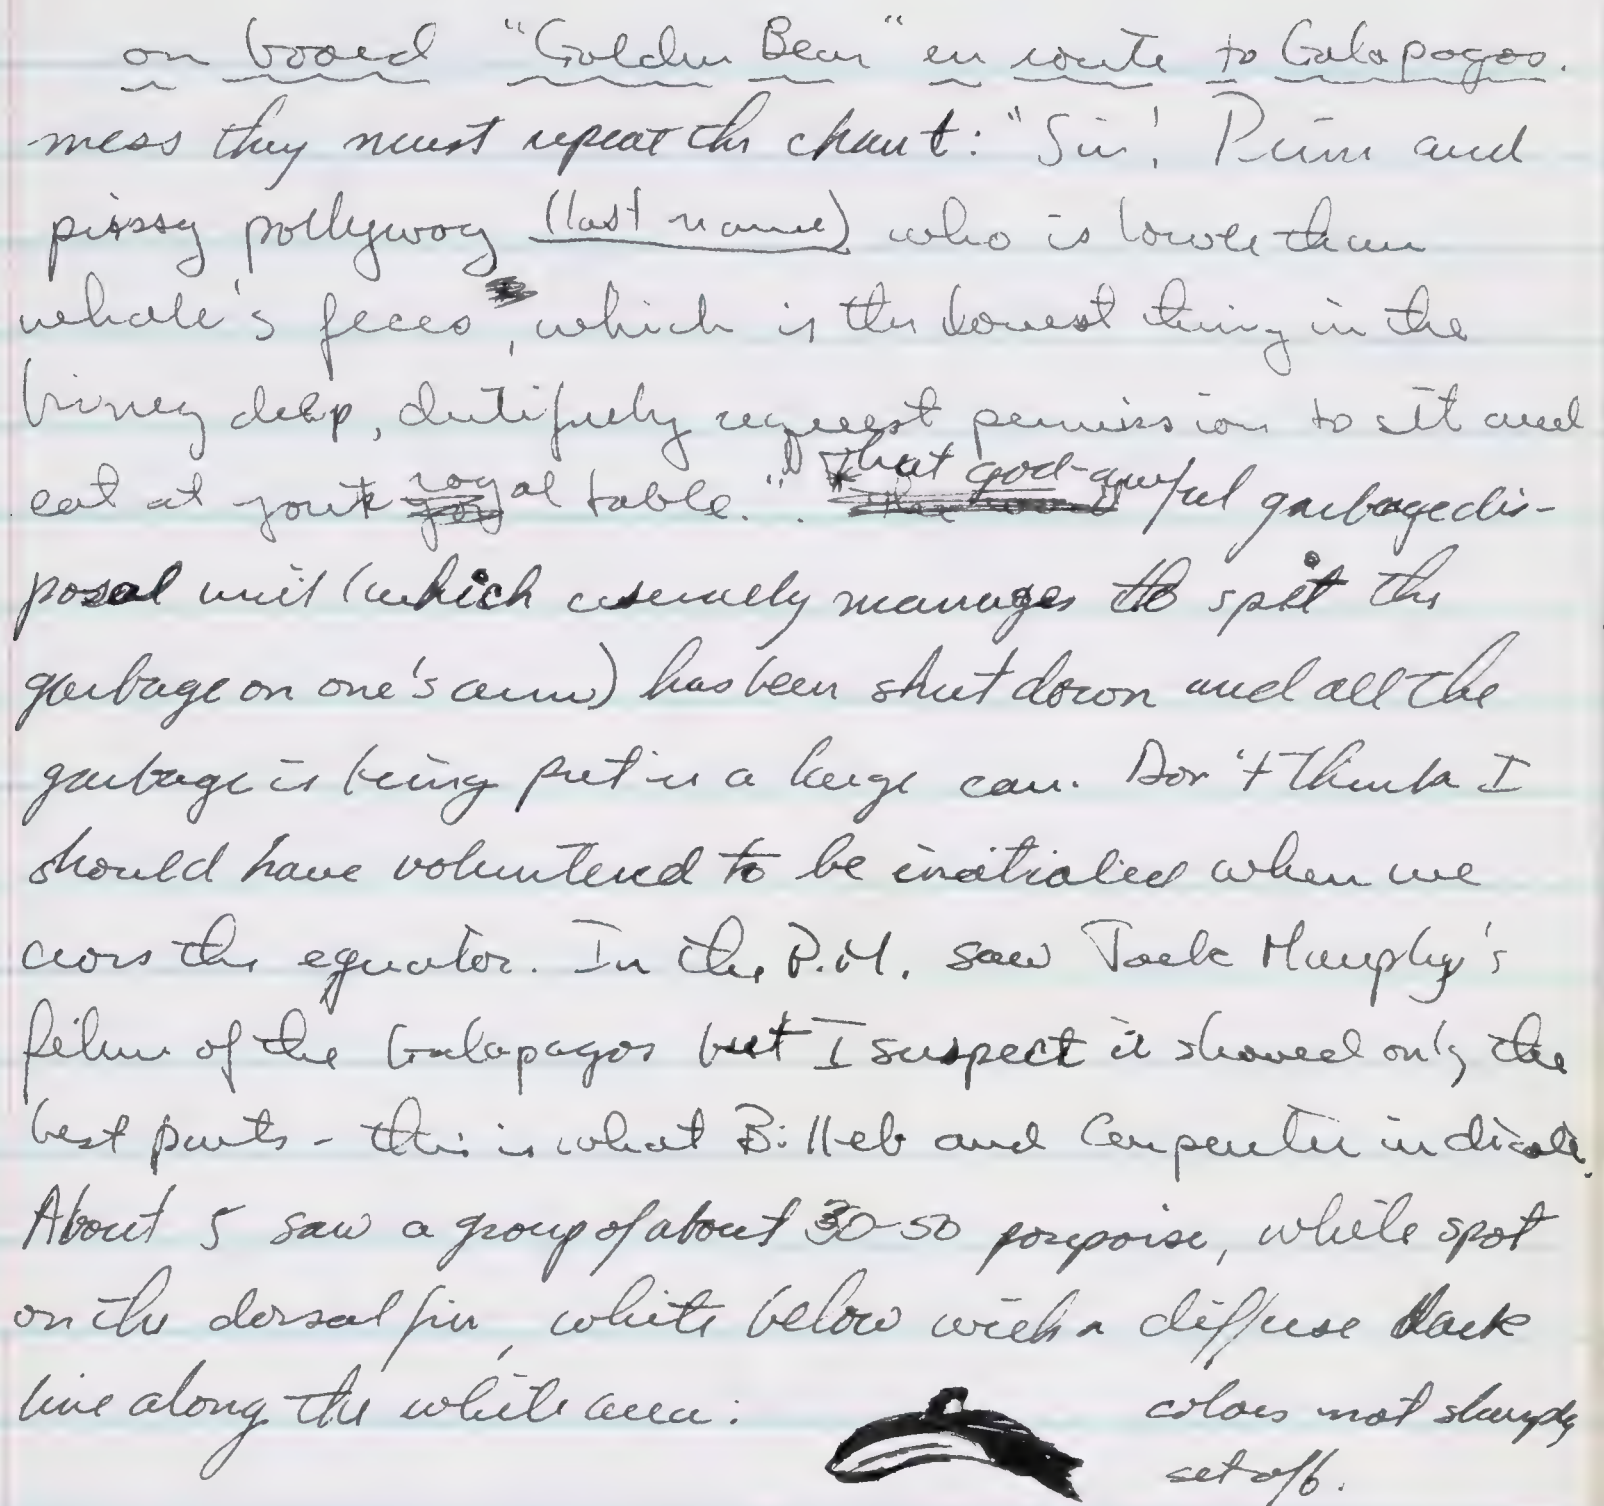 on board "Golden Bear" en route to Galapagos.
mess they must repeat the chant: "Sir! Prim and
pissy pollywog (last name) who is lower than
whale's feces, which is the lowest thing in the
briney deep, dutifully request permission to sit and
eat at your royal table." That god-awful garbage dis-
posal unit (which usually manages to spit the
garbage on one's arm) has been shut down and all the
garbage is being put in a large can. Don't think I
should have volunteered to be initiated when we
cross the equator. In the P.M. saw Jack Murphy's
film of the Galapagos but I suspect it showed only the
best parts - this is what Billeb and Carpenter indicate.
About 5 saw a group of about 30-50 porpoise, white spot
on the dorsal fin, white below with a diffuse dark
line along the white area:
colors not sharply
set off.